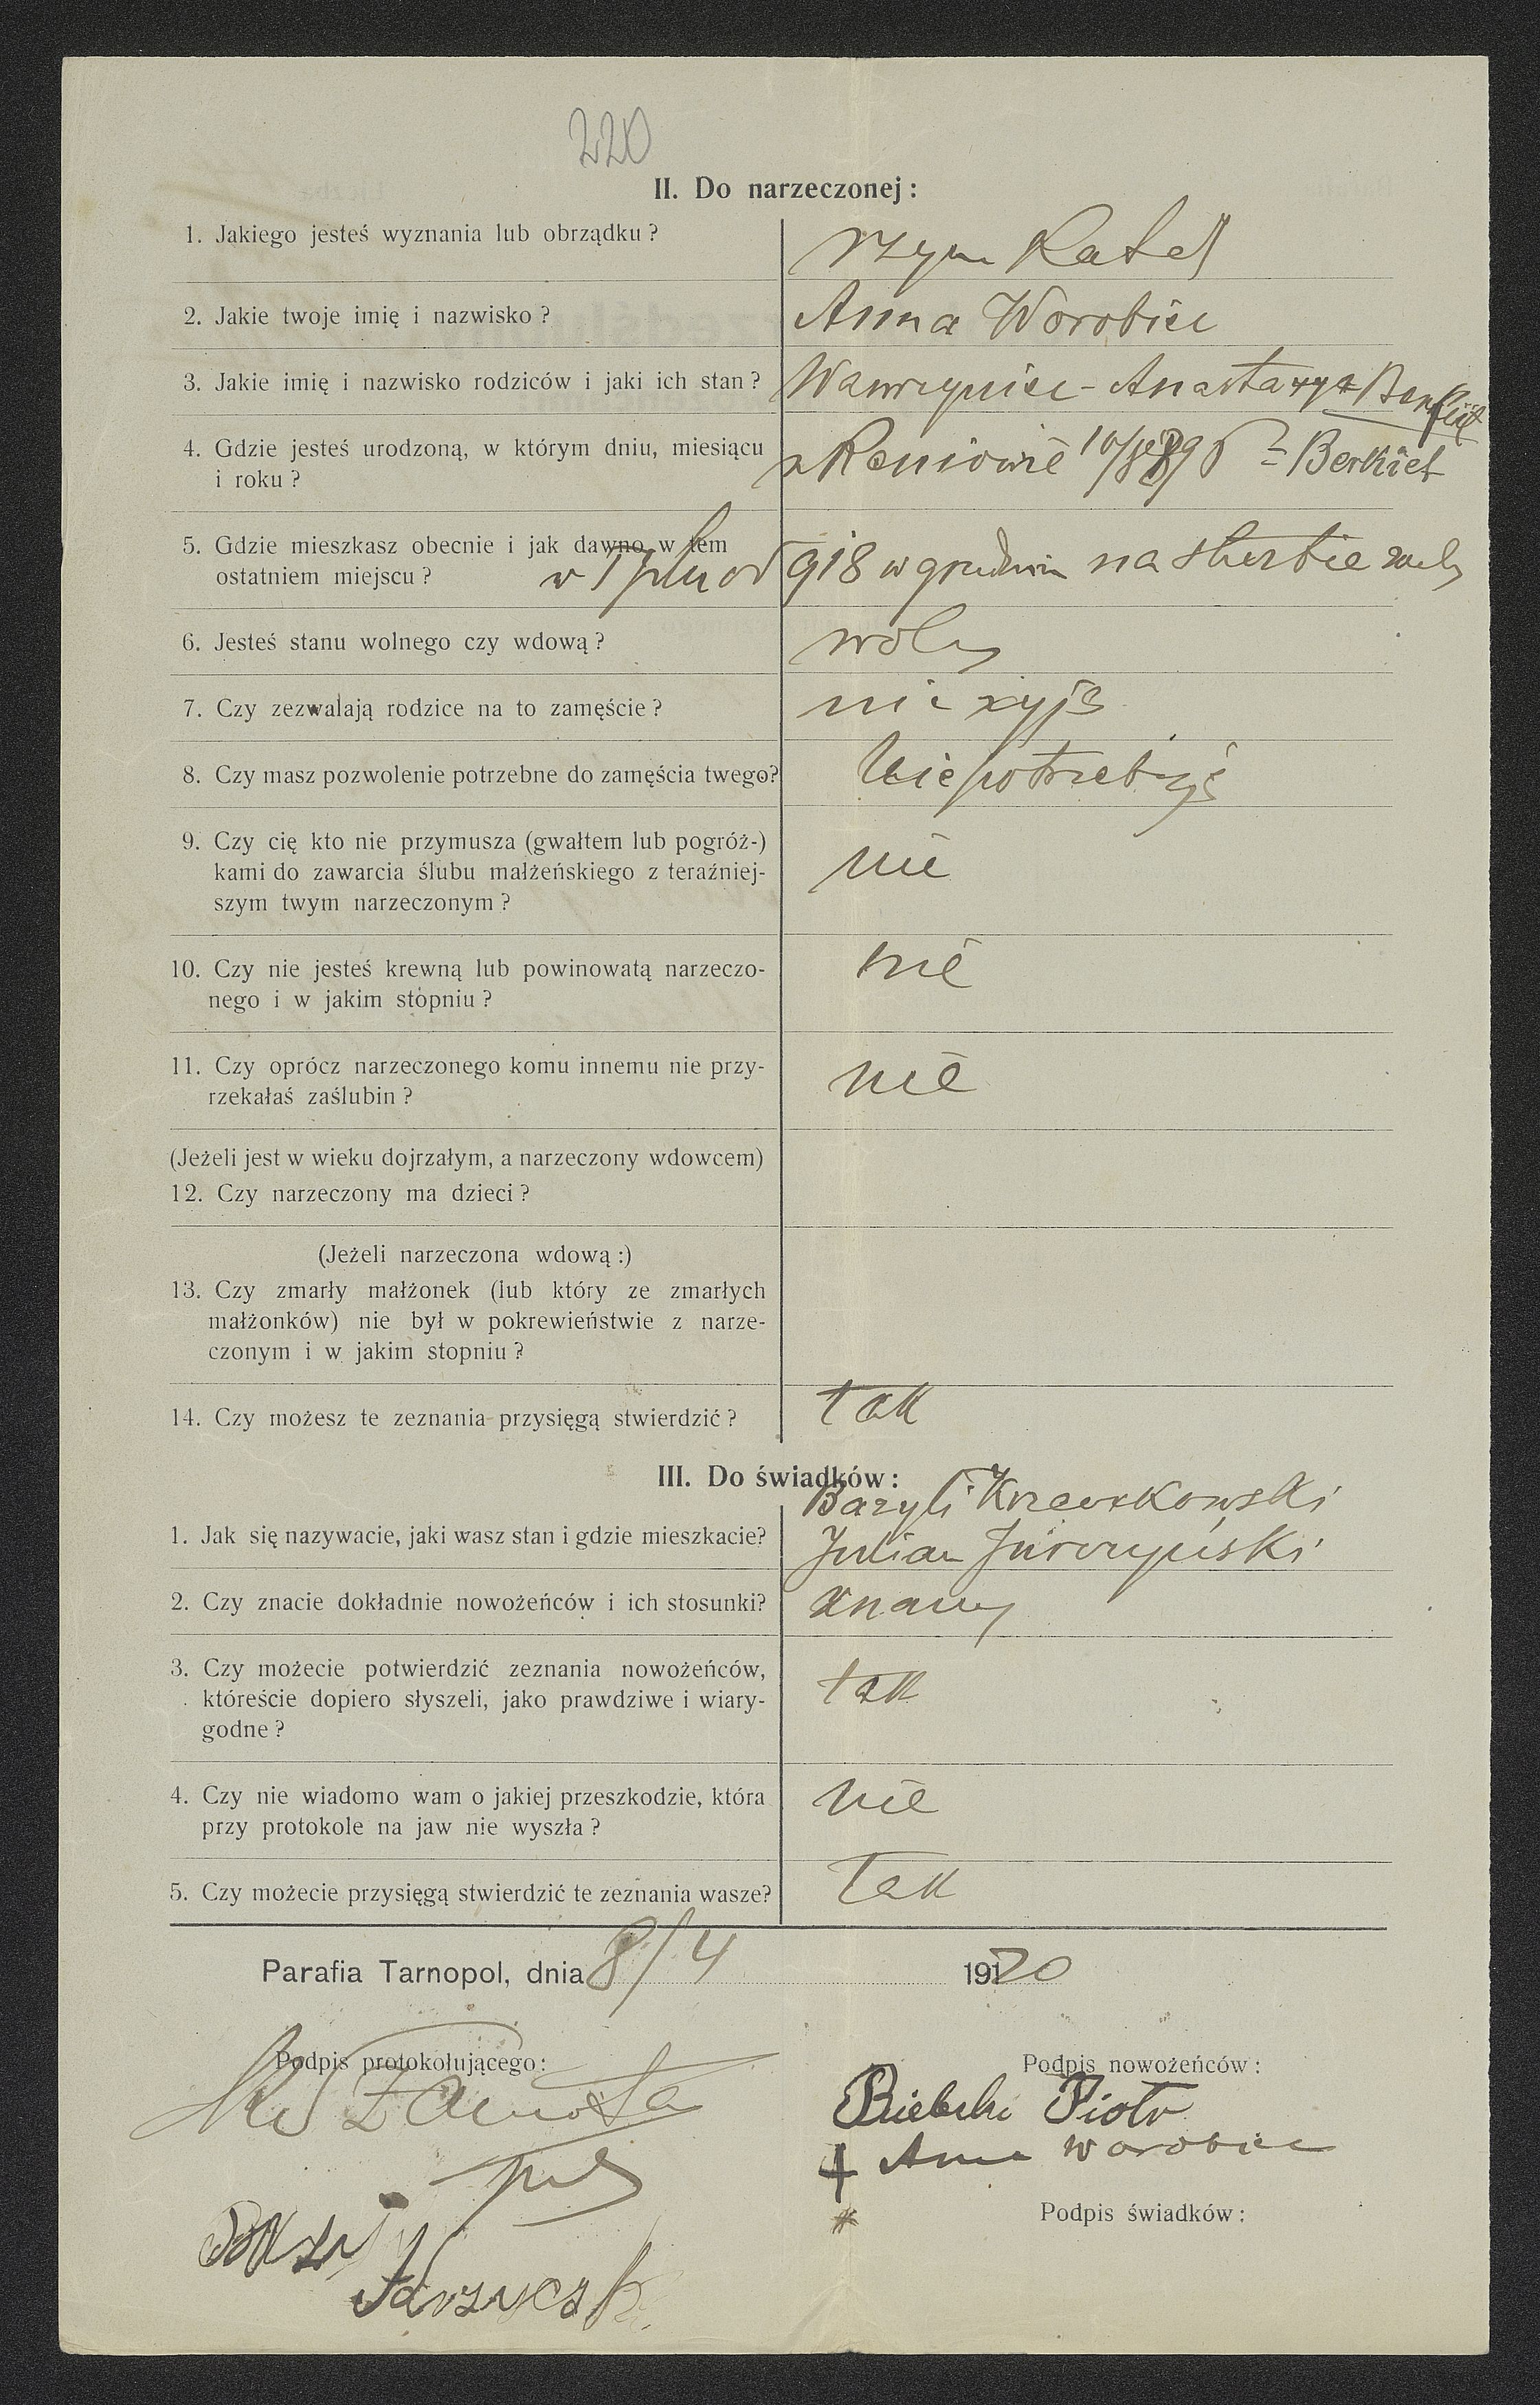 220
II. Do narzeczonej:
1. Jakiego jesteś wyznania lub obrządku?
rzym Katol
2. Jakie twoje imię i nazwisko?
Anna Worobiec
3. Jakie imię i nazwisko rodziców i jaki ich stan?
Wawrzyniec - Anastazya
4. Gdzie jesteś urodzoną, w którym dniu, miesiącu
i roku?
Berkiet
5. Gdzie mieszkasz obecnie i jak dawno w tem
ostatniem miejscu?
w Tplu od 918 w grudniu na służbie
6. Jesteś stanu wolnego czy wdową?
wolny
7. Czy zezwalają rodzice na to zamęście?
nie żyją
8. Czy masz pozwolenie potrzebne do zamęścia twego?
Nie potrzebuję
9. Czy cię kto nie przymusza (gwałtem lub pogróż-)
kami do zawarcia ślubu małżeńskiego z teraźniej-
szym twym narzeczonym?
nie
10. Czy nie jesteś krewną lub powinowatą narzeczo-
nego i w jakim stopniu?
nie
11. Czy oprócz narzeczonego komu innemu nie przy-
rzekałaś zaślubin?
nie
(Jeżeli jest w wieku dojrzałym, a narzeczony wdowcem)
12. Czy narzeczony ma dzieci?
(Jeżeli narzeczona wdową:)
13. Czy zmarły małżonek (lub który ze zmarłych
małżonków) nie był w pokrewieństwie z narze-
czonym i w jakim stopniu?
14. Czy możesz te zeznania przysięgą stwierdzić?
tak
III. Do świadków:
Bazyli
1. Jak się nazywacie, jaki wasz stan i gdzie mieszkacie?
Julian Jurczyński
2. Czy znacie dokładnie nowożeńców i ich stosunki?
znamy
3. Czy możecie potwierdzić zeznania nowożeńców,
któreście dopiero słyszeli, jako prawdziwe i wiary-
godne?
tak
4. Czy nie wiadomo wam o jakiej przeszkodzie, która
przy protokole na jaw nie wyszła?
nie
5. Czy możecie przysięgą stwierdzić te zeznania wasze?
Tak
Parafia Tarnopol, dnia 8/4 1920
Podpis protokołującego:
Podpis nowożeńców:
Bielski Piotr
+ Anna Worobiec
Podpis świadków: